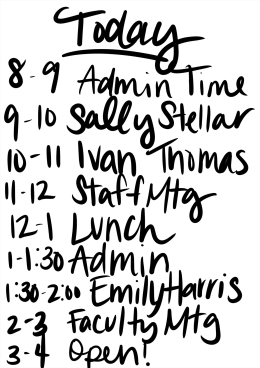 Today
8-9 Admin Time
9-10 Sally Stellar
10-11 Ivan Thomas
11-12 Staff Mtg
12-1 Lunch
1-1:30 Admin
1:30-2:00 Emily Harris
2-3 Faculty Mtg
3-4 Open!